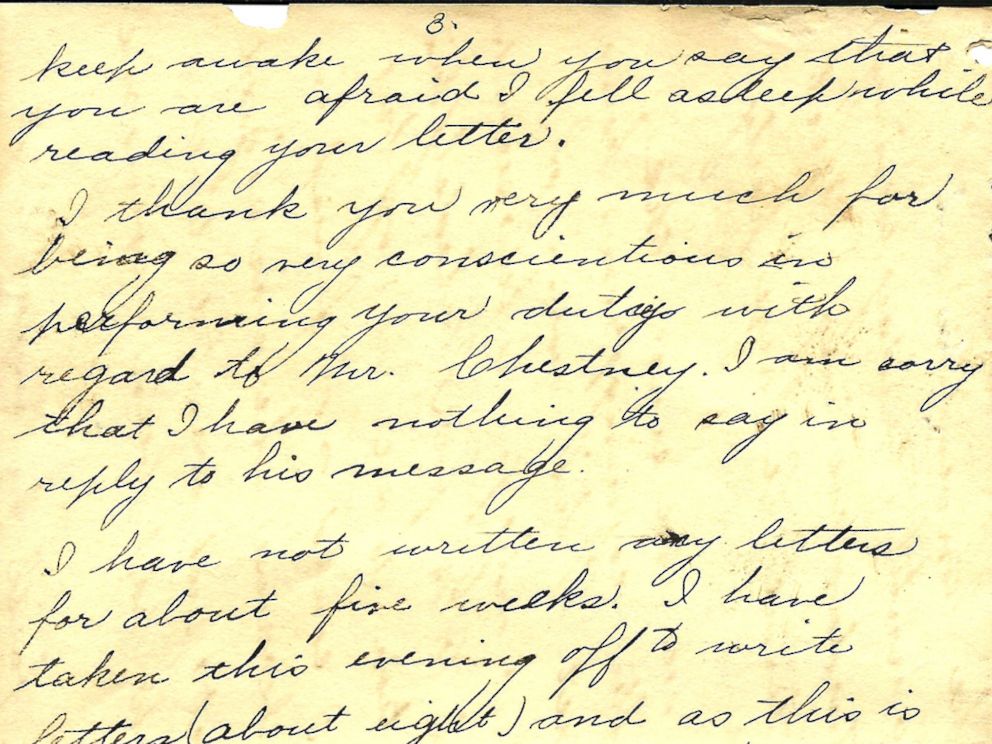 3.
keep awake when you say that
you are afraid I fell asleep while
reading your letter.
I thank you very much for
being so very conscientious in
performing your dutys with
regard to Mr. Chestney. I am sorry
that I have nothing to say in
reply to his message.
I have not written any letters
for about five weeks. I have
taken this evening off to write
letters (about eight) and as this is